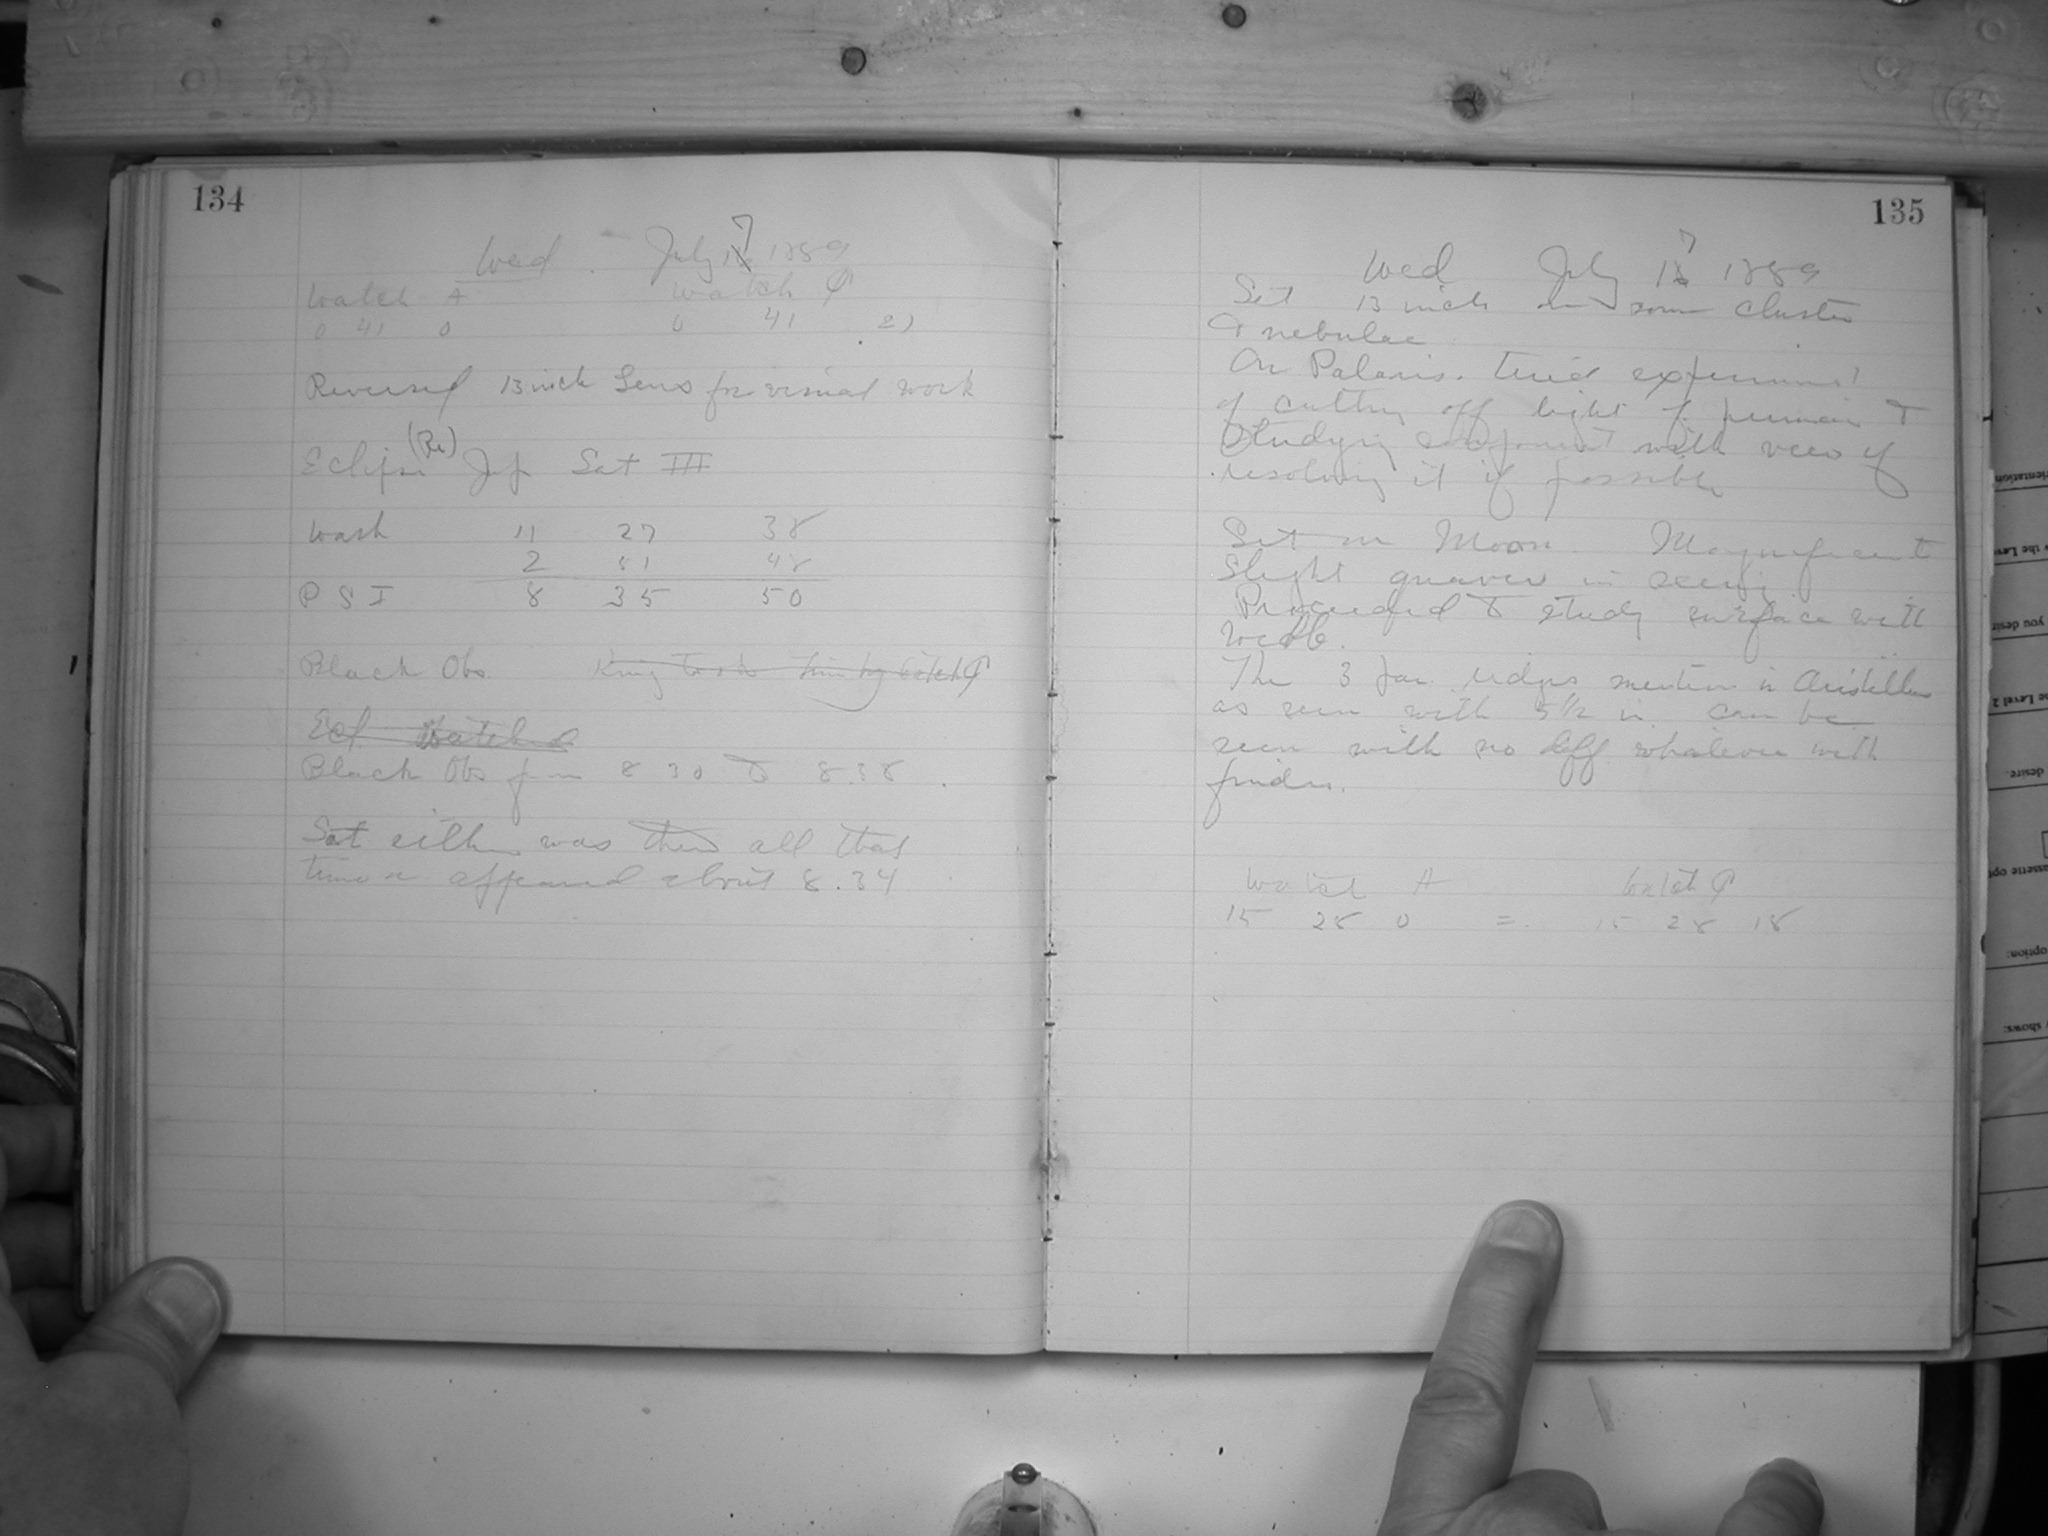 134
Wed. July 17 1889
Watch A Watch
0 41 0 0 41 21
Reversed 13 inch Lens for visual work
Eclipse (Re) Jup Sat III
Wash 11 27 38
2 51 48
P S I 8 35 50
Black Obs. King took time by watch
Ecl Watched
Black Obs from 8 30 to 8.38.
Sat either was there all that
time or appeared about 8.34
135
Wed July 17 1889
Set 13 inch on some cluster
& nebulae
On Polaris. tried experiment
of cutting off light of &
studying with view of
resolving it if possible
Set on Moon. Magnificent
Slight quaver in seeing
Proceeded to study surface with
Webb.
The 3 ridges mention in Aristillus
as seen with 5 1/2 in. can be
seen with no diff whatever with
finder.
Watch A Watch
15 28 0 = 15 28 18